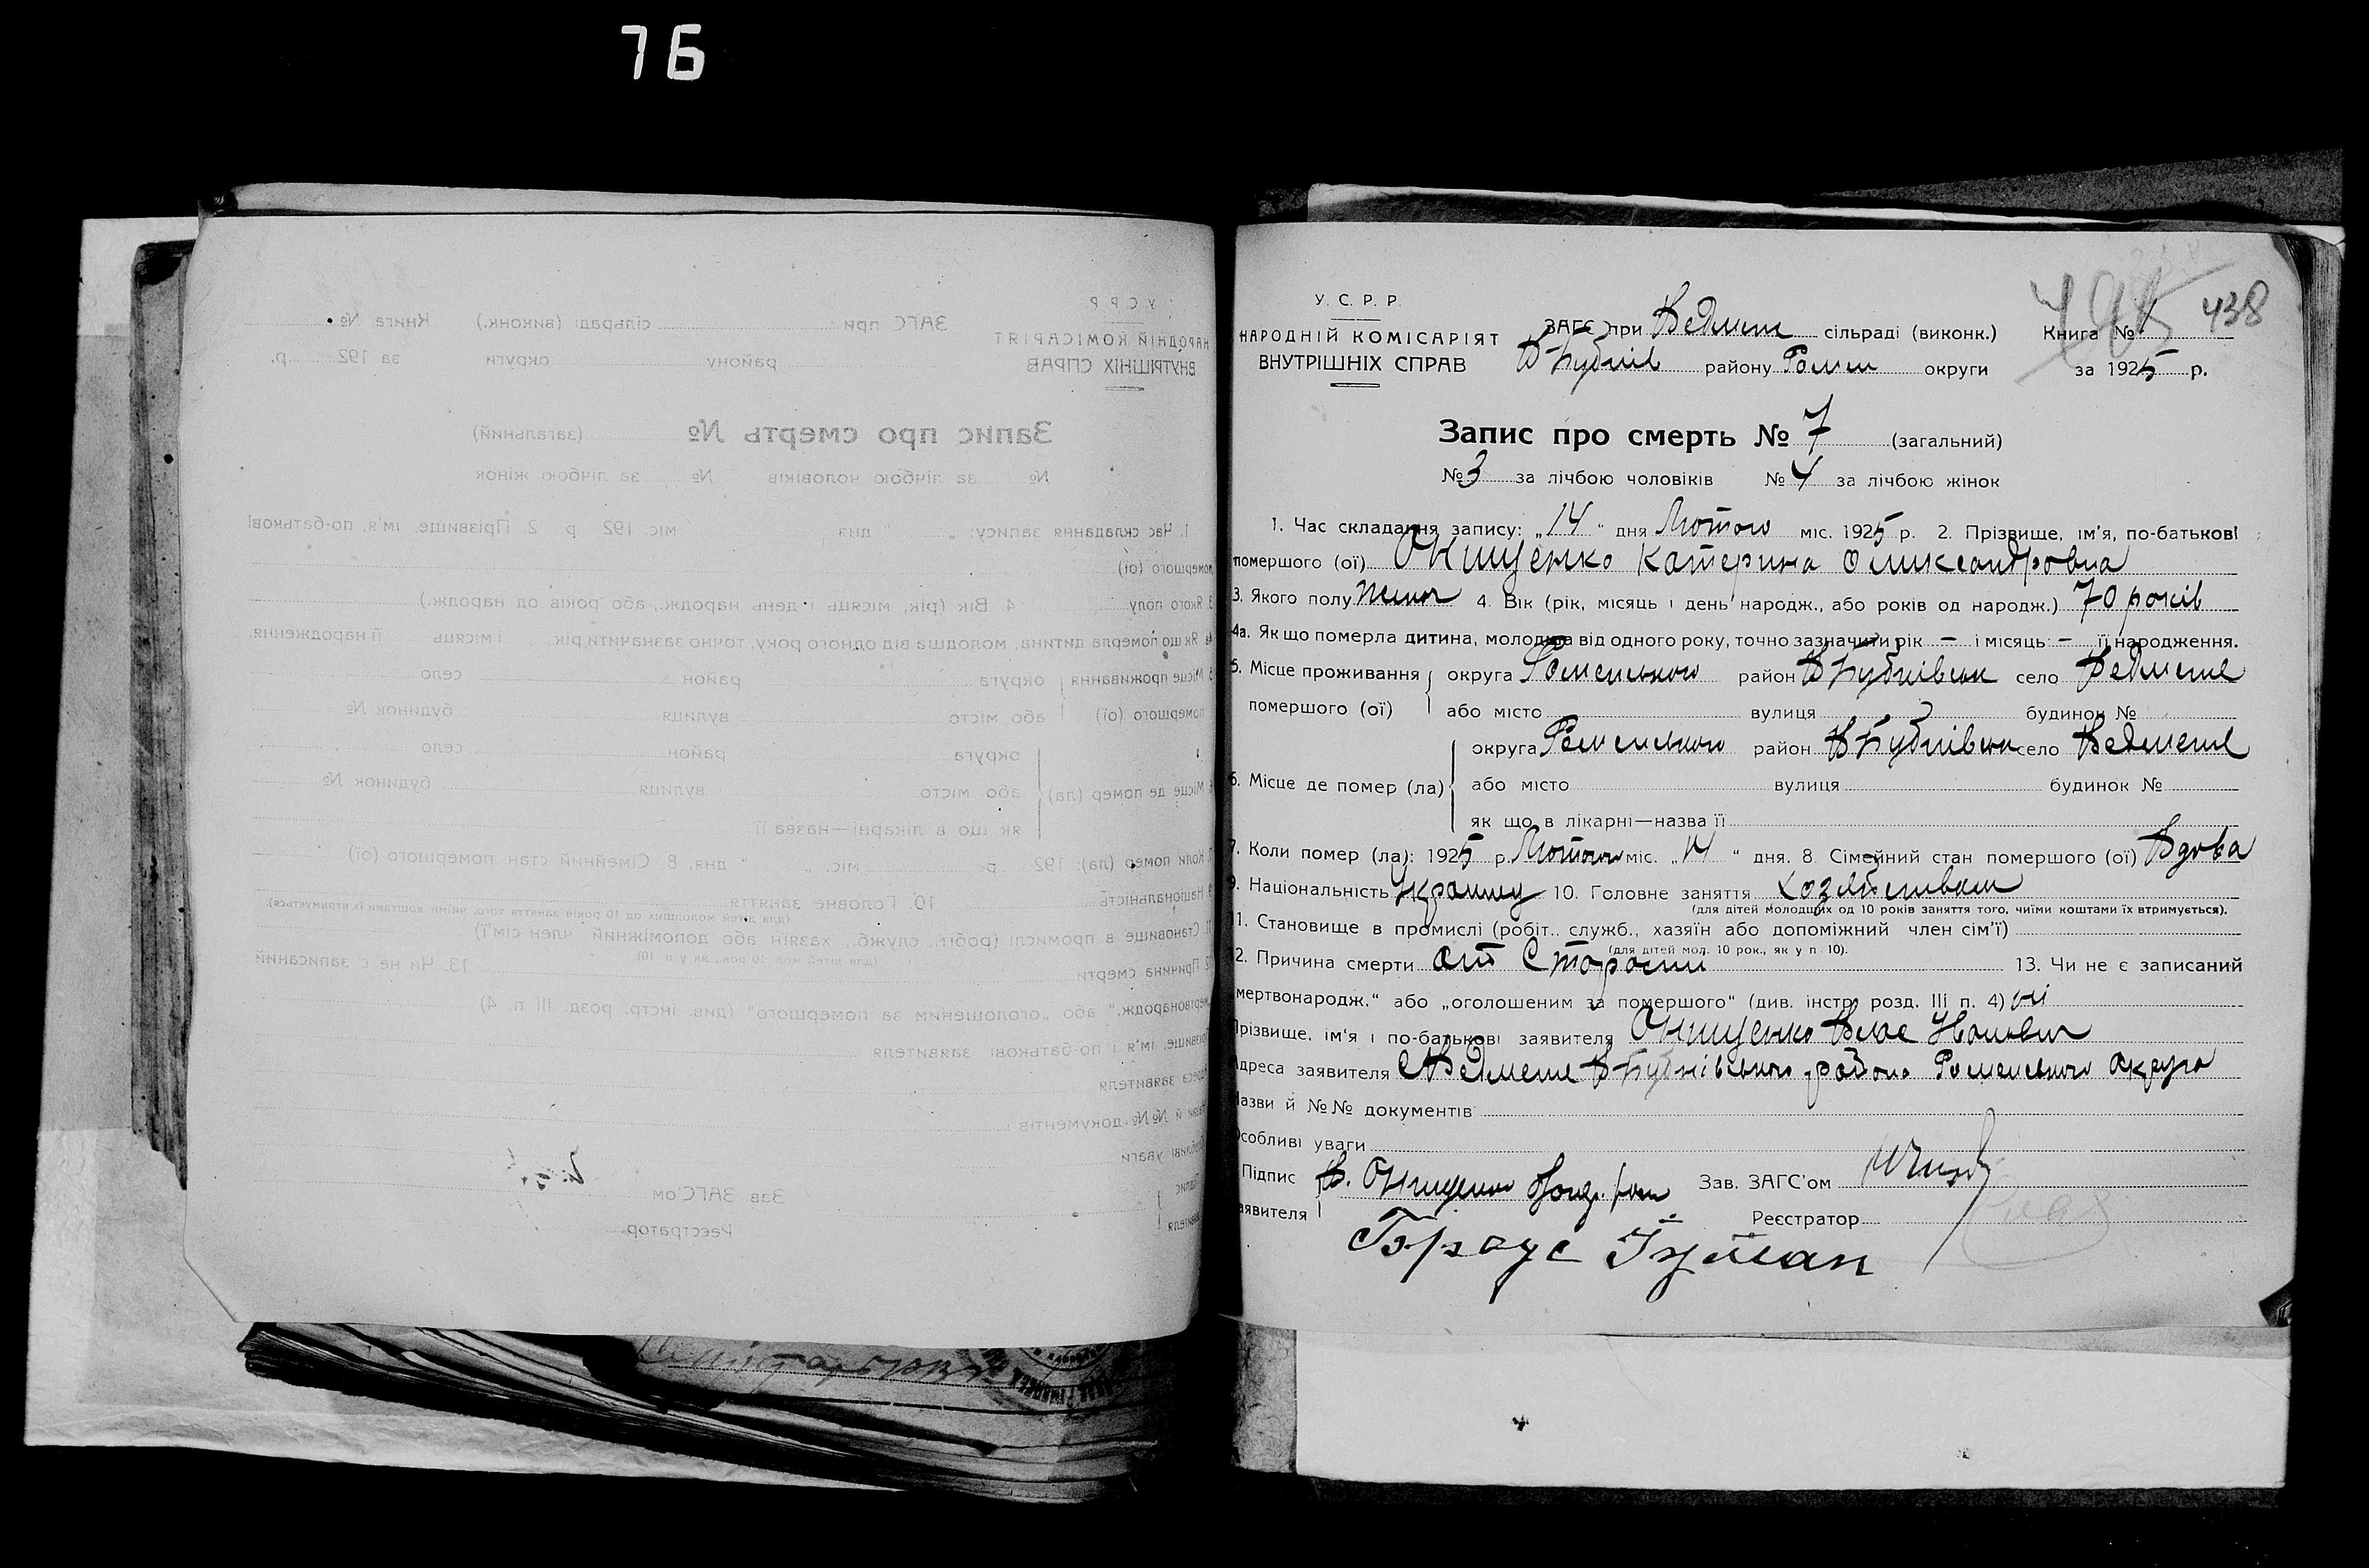 76
438
У. С. Р. Р.
НАРОДНІЙ КОМІСАРІЯТ
ВНУТРІШНІХ СПРАВ
ЗАГС при Ведмеж сільраді (виконк.) Книга № 1
В Бубнів району Ромен округи за 1925 р.
Запис про смерть № 7 (загальний)
№ 3 за лічбою чоловіків № 4 за лічбою жінок
1. Час складання запису: „14" дня Лютого міс. 1925 р. 2. Прізвище, ім'я, по-батькові
помершого (ої) Онищенко Катерина Олександровна
3. Якого полу жіноч 4. Вік (рік, місяць і день народж., або років од народж.) 70 років
4а. Як що померла дитина, молодша від одного року, точно зазначити рік — і місяць — її народження.
5. Місце проживання округа Роменського район В Бубнівськ село Ведмеже
помершого (ої) або місто вулиця будинок №
округа Роменського район В Бубнівськ село Ведмеже
6. Місце де помер (ла) або місто вулиця будинок №
як що в лікарні—назва її
7. Коли помер (ла): 1925 р. Лютого міс. „14" дня. 8. Сімейний стан помершого (ої) Вдова
9. Національність Українц 10. Головне заняття
(для дітей молодших од 10 років заняття того, чиїми коштами їх втримується).
1. Становище в промислі (робіт., служб., хазяїн або допоміжний член сім'ї)
(для дітей мол. 10 рок., як у п 10).
2. Причина смерти от Старости 13. Чи не є записаний
мертвонародж." або „оголошеним за помершого" (див. інстр. розд. III п. 4) ні
Прізвище, ім'я і по-батькові заявителя Онищенко Влас Іванович
Адреса заявителя с Ведмеже В Бубнівського району Роменського округа
Назви й №№ документів
Особливі уваги
Підпис В. Онищенко Зав. ЗАГС'ом
заявителя Реєстратор